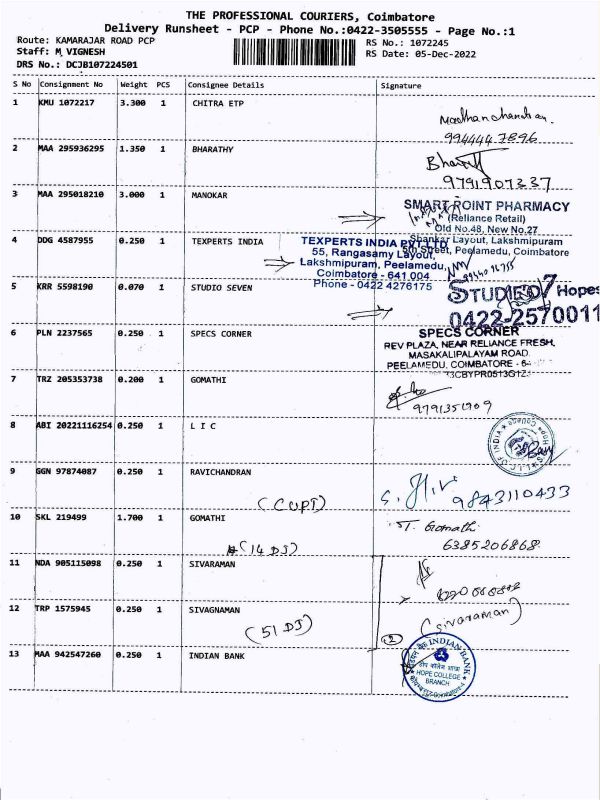 THE PROFESSIONAL COURIERS, Coimbatore
Delivery Runsheet - PCP - Phone No.:0422-3505555 - Page No.:1
Route: KAMARAJAR ROAD PCP
RS No.: 1072245
Staff: M VIGNESH
RS Date: 05-Dec-2022
DRS No.: DCJB107224501
S No Consignment No Weight PCS Consignee Details Signature
1 KMU 1072217 3.300 1 CHITRA ETP
2 MAA 295936295 1.350 1 BHARATHY
9791907337
3 MAA 295018210 3.000 1 MANOKAR
SMART POINT PHARMACY
(Reliance Retail)
Old No.48, New No.27
Shankar Layout, Lakshmipuram
5th Street, Peelamedu, Coimbatore
4 DDG 4587955 0.250 1 TEXPERTS INDIA
TEXPERTS INDIA PVT LTD
55, Rangasamy Layout,
Lakshmipuram, Peelamedu,
Coimbatore - 641 004
Phone - 0422 4276175
5 KRR 5598190 0.070 1 STUDIO SEVEN
7 Hopes
0422-2570011
6 PLN 2237565 0.250 1 SPECS CORNER
SPECS CORNER
REV PLAZA, NEAR RELIANCE FRESH,
MASAKALIPALAYAM ROAD,
PEELAMEDU, COIMBATORE - 6
7 TRZ 205353738 0.200 1 GOMATHI
8 ABI 20221116254 0.250 1 L I C
L.I.C OF INDIA
Hope College
9 GGN 97874087 0.250 1 RAVICHANDRAN
9843110433
10 SKL 219499 1.700 1 GOMATHI
T. Gomathi
6385206868
(14 DJ)
11 NDA 905115098 0.250 1 SIVARAMAN
12 TRP 1575945 0.250 1 SIVAGNAMAN
(Sivaraman)
(51 DJ)
2
13 MAA 942547260 0.250 1 INDIAN BANK
INDIAN BANK
HOPE COLLEGE
BRANCH